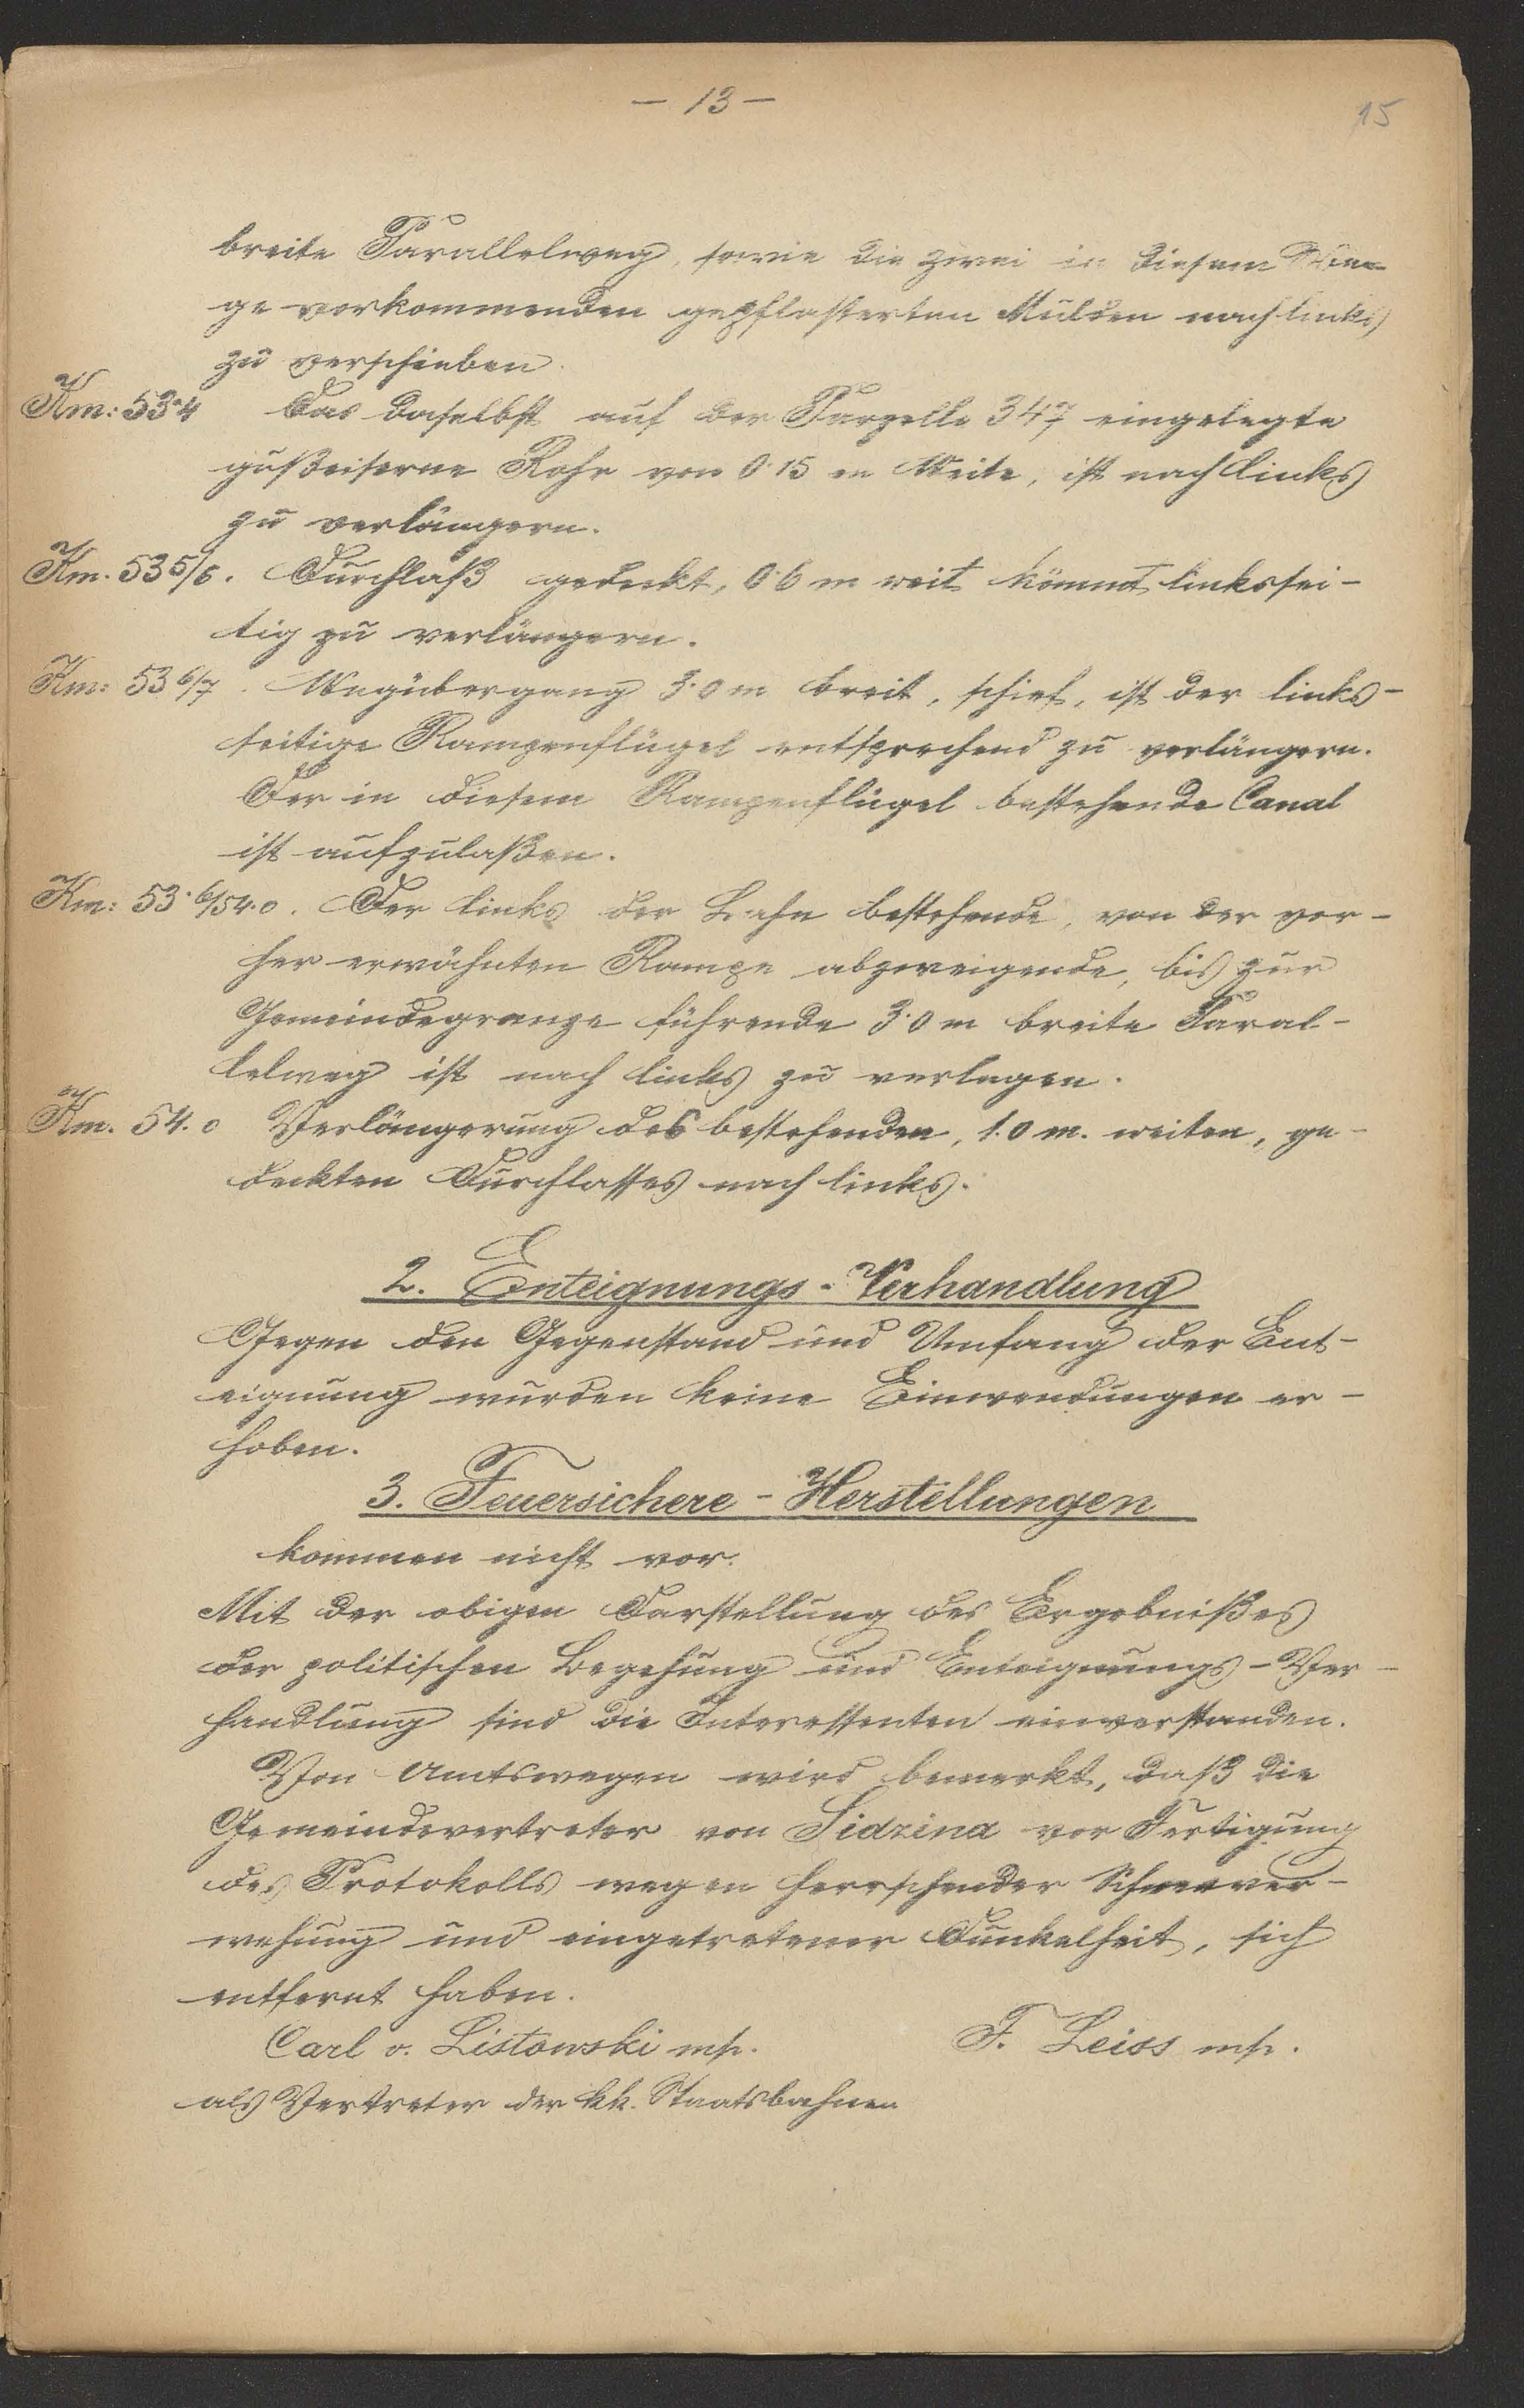 — 13 —
15
breite Parallelweg, sowie die zwei in diesem We-
ge vorkommenden gepflasterten Mulden nach links
zu verschieben.
Km: 53·4 Das daselbst auf der Parzelle 347 eingelegte
gußeiserne Rohr von 0·15 m Weite, ist nach links
zu verlängern.
Km. 53 5/6. Durchlaß gedeckt, 0·6 m weit kömmt linkssei-
tig zu verlängern.
Km: 53 6/7. Wegübergang 3·0 m breit, schief, ist der links-
seitige Rampenflügel entsprechend zu verlängern.
Der in diesem Rampenflügel bestehende Canal
ist aufzulaßen.
Km: 53·6/54·0. Der links der Bahn bestehende, von der vor-
her erwähnten Rampe abzweigende, bis zur
Gemeindegrenze führende 3·0 m breite Paral-
lelweg ist nach links zu verlegen.
Km. 54.0 Verlängerung des bestehenden, 1.0 m. weiten, ge-
deckten Durchlasses nach links.
2. Enteignungs-Verhandlung
Gegen den Gegenstand und Umfang der Ent-
eignung wurden keine Einwendungen er-
hoben.
3. Feuersichere-Herstellungen
kommen nicht vor.
Mit der obigen Darstellung des Ergebnißes
der politischen Begehung und Enteignungs-Ver-
handlung sind die Interessenten einverstanden.
Von Amtswegen wird bemerkt, daß die
Gemeindevertreter von Sidzina vor Fertigung
des Protokolls wegen herrschender Schneever-
wehung und eingetretener Dunkelheit, sich
entfernt haben.
Carl v. Listowski mp. F. Leiss mp.
als Vertreter der kk. Staatsbahnen